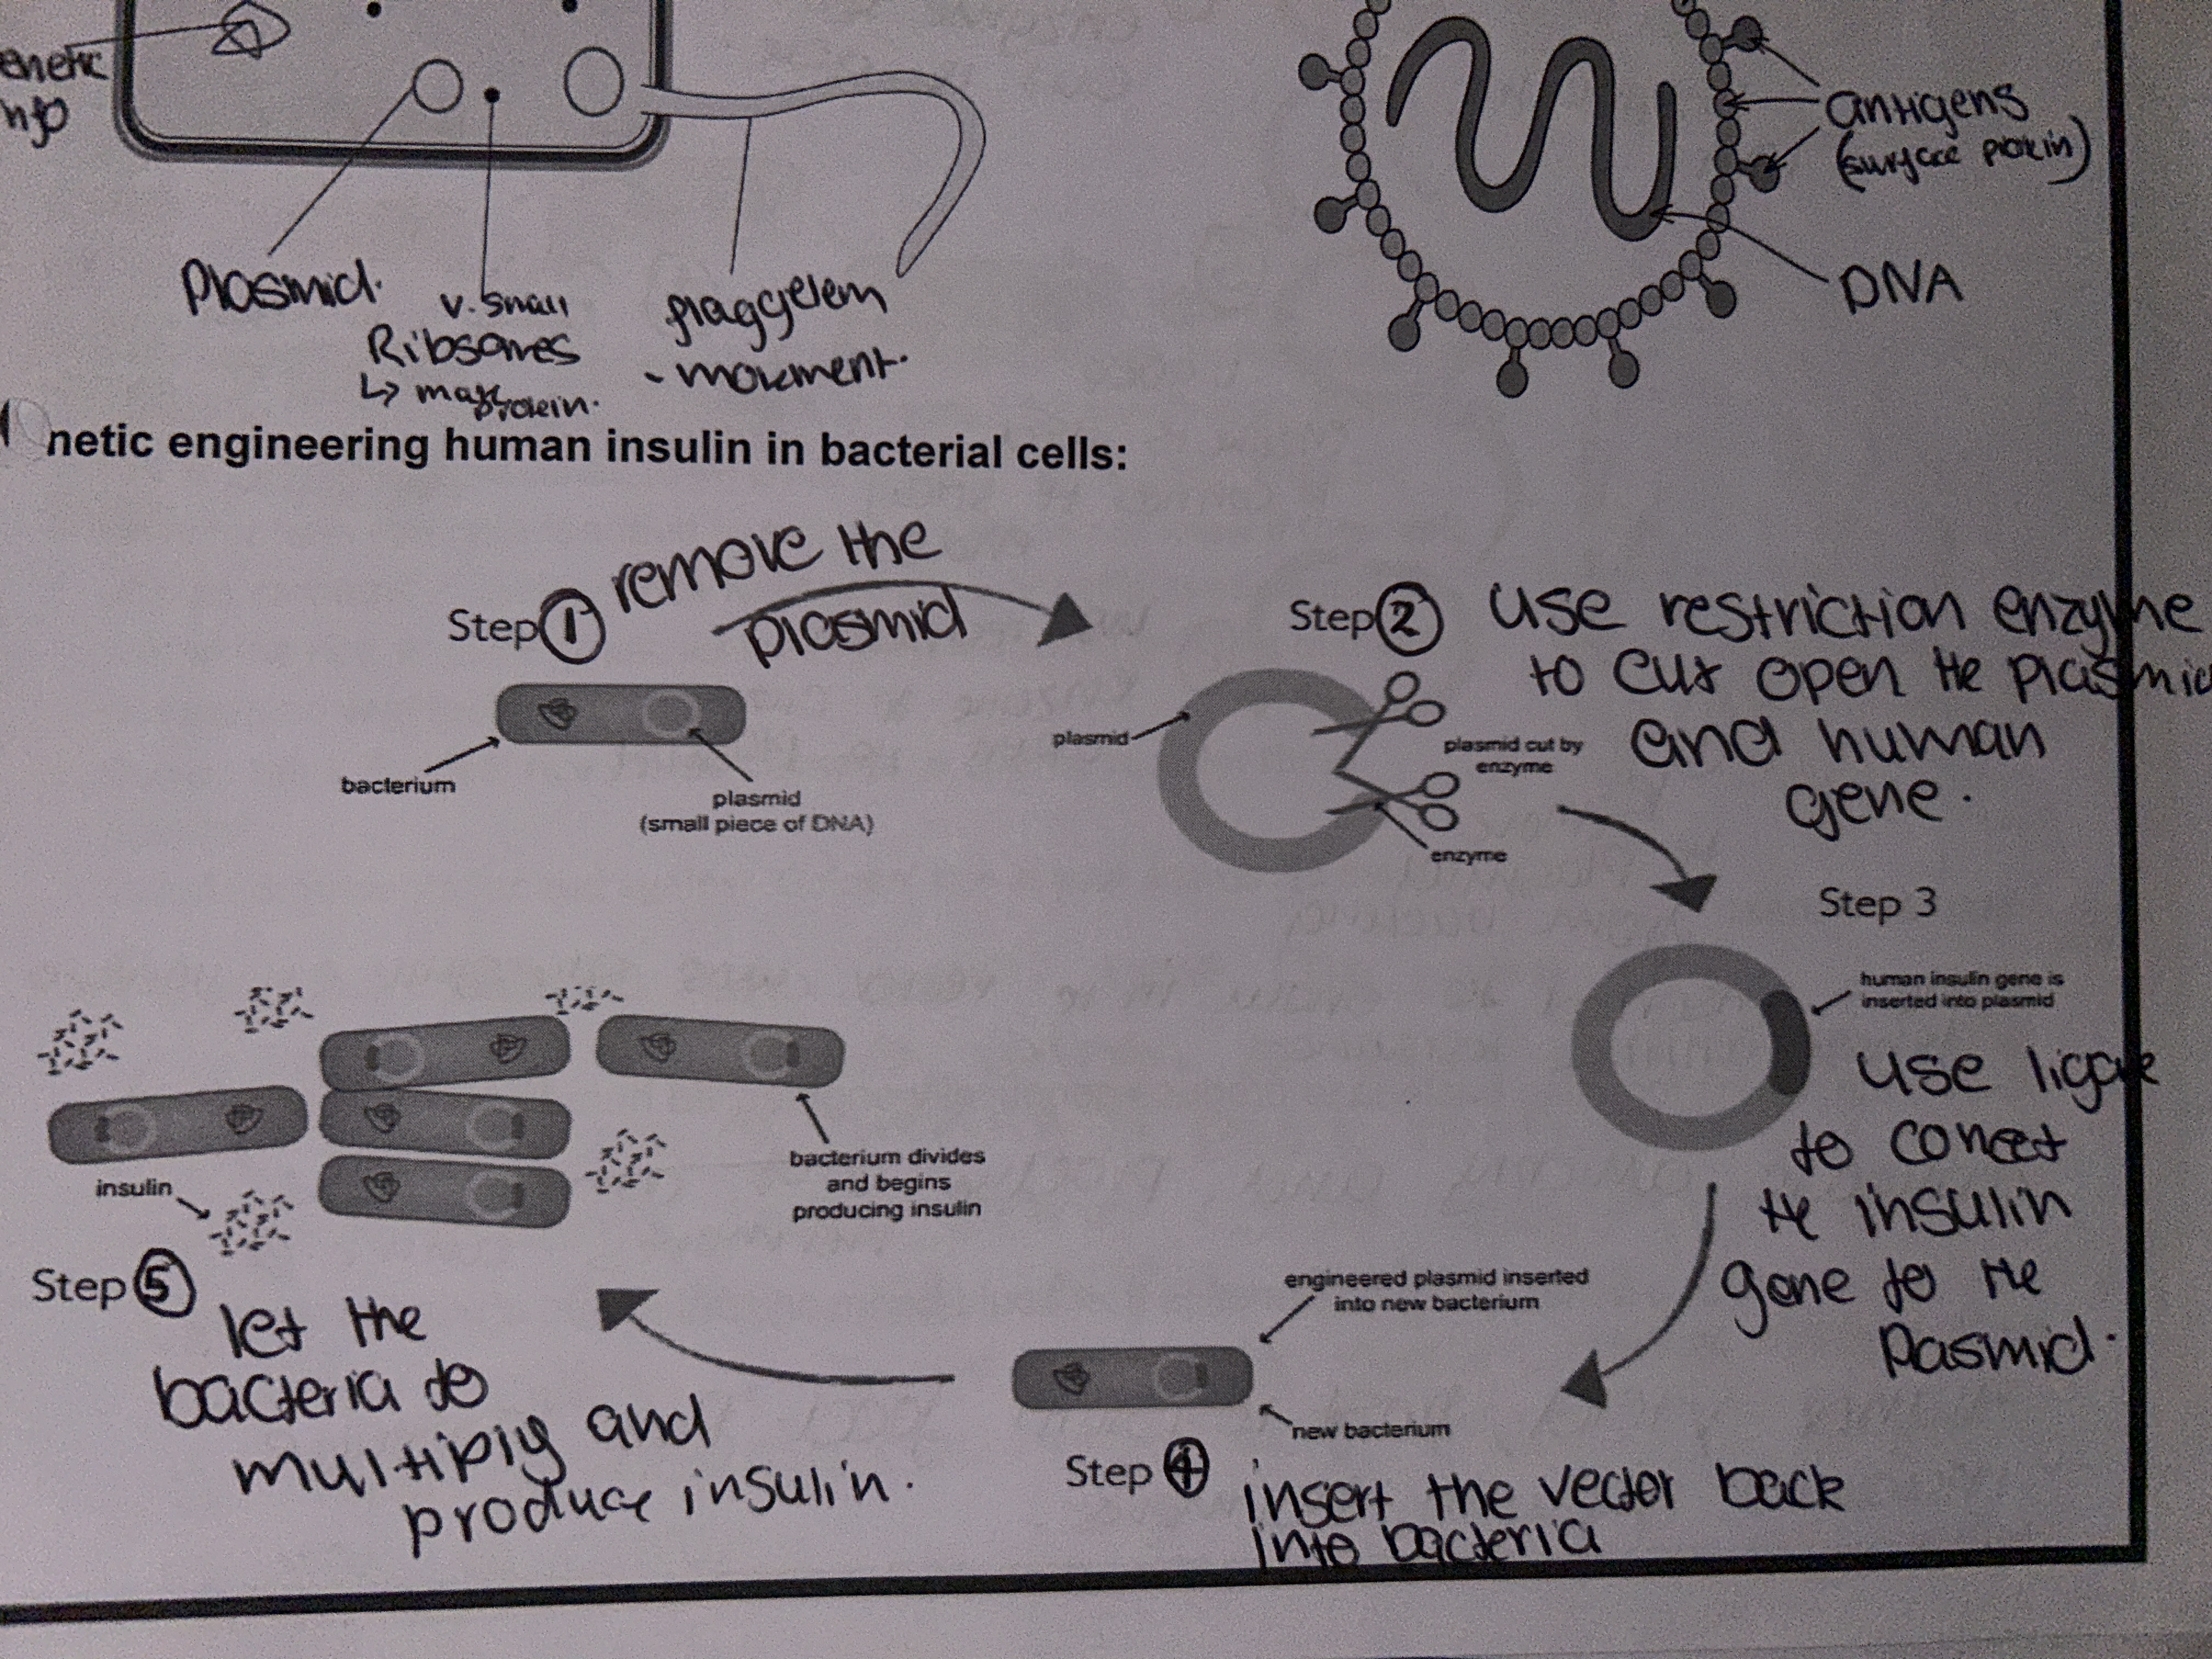 enetic
nfo
Plasmid.
v. small
Ribsomes
↳ make
protein.
flaggelem
- movement.
antigens
(surface protein)
DNA
netic engineering human insulin in bacterial cells:
Step 1 remove the
plasmid
bacterium
plasmid
(small piece of DNA)
Step 2 use restriction enzyme
to cut open the plasmid
and human
gene.
plasmid
plasmid cut by
enzyme
enzyme
Step 3
human insulin gene is
inserted into plasmid
use ligase
to conect
the insulin
gene to the
Pasmid.
engineered plasmid inserted
into new bacterium
new bacterium
Step 4 insert the vector back
into bacteria
bacterium divides
and begins
producing insulin
insulin
Step 5
let the
bacteria to
multiply and
produce insulin.